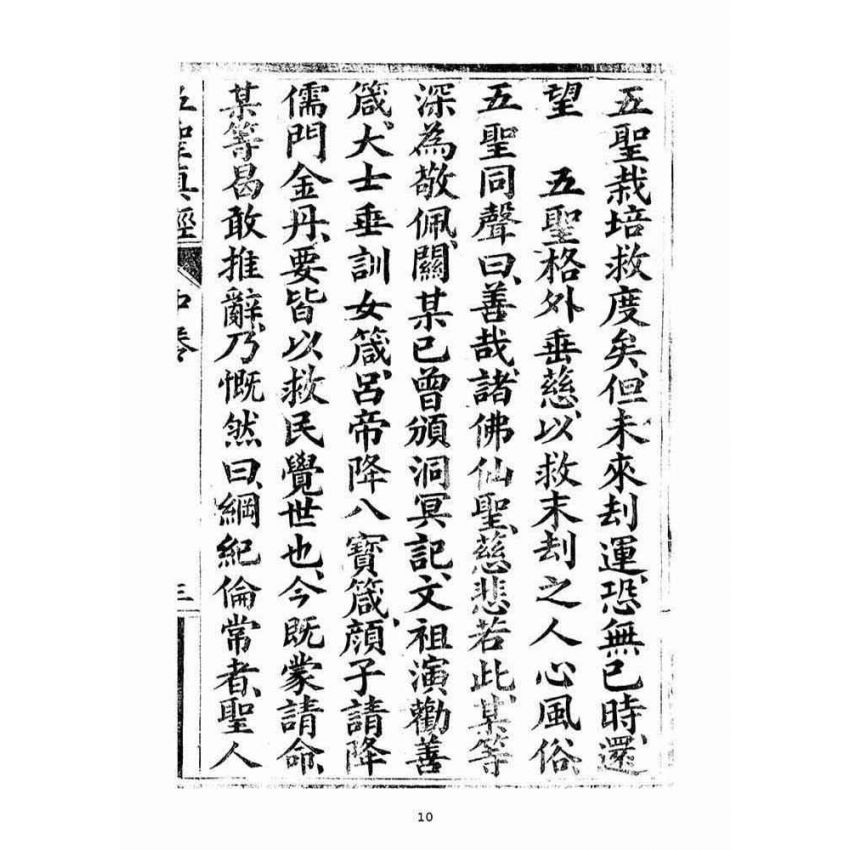 五聖栽培救度矣、但未來刦運、恐無已時、還
望　五聖格外垂慈、以救末刦之人心風俗、
五聖同聲曰、善哉、諸佛仙聖、慈悲若此、某等
深為敬佩、關某已曾頒洞冥記、文祖演勸善
箴、大士垂訓女箴、呂帝降八寶箴、顏子請降
儒門金丹、要皆以救民覺世也、今既蒙請命、
某等曷敢推辭、乃慨然曰、綱紀倫常者、聖人
五聖真經　中卷　三
10